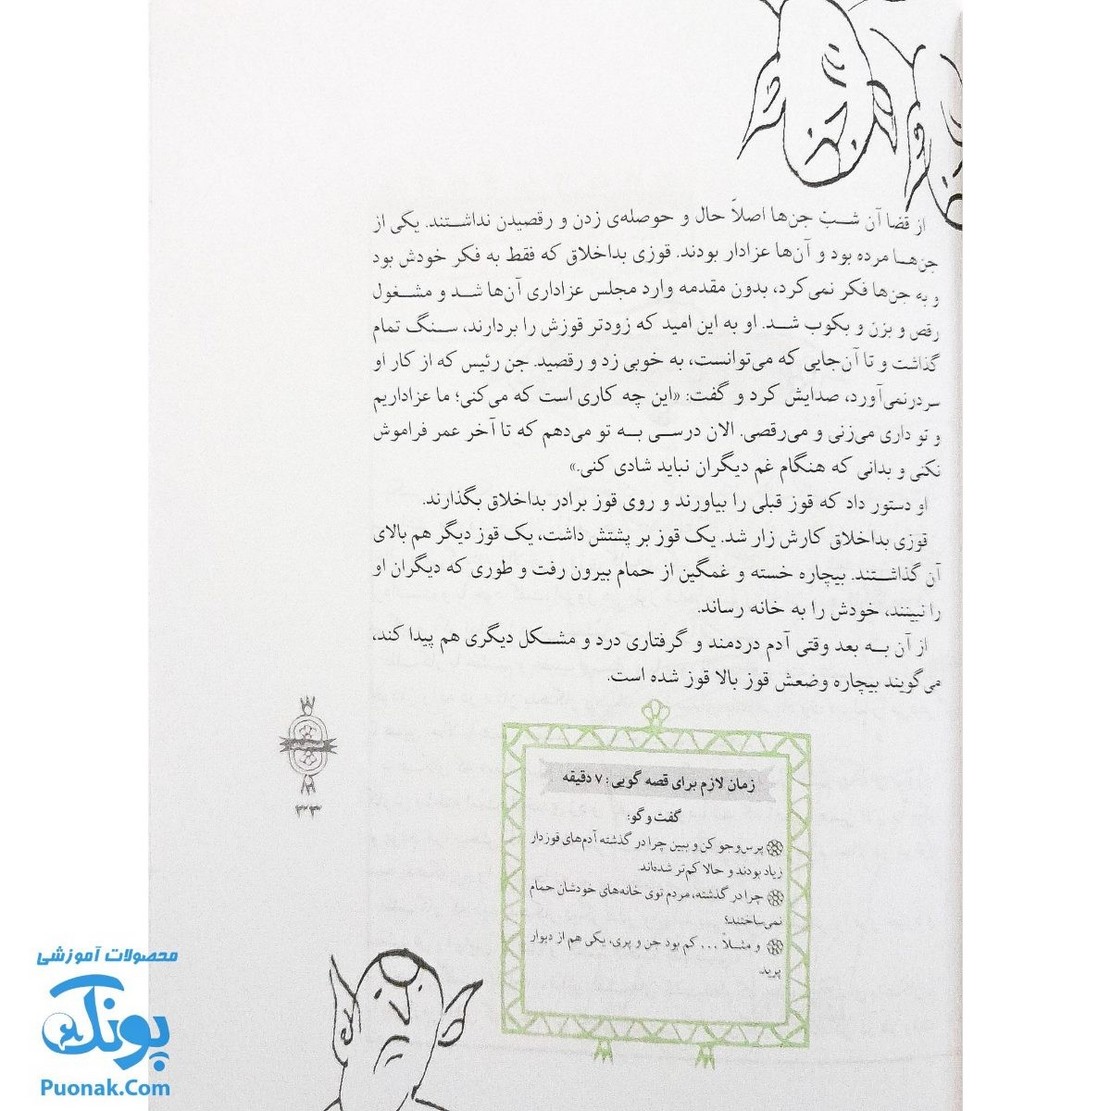 از قضا آن شب جن‌ها اصلاً حال و حوصله‌ی زدن و رقصیدن نداشتند. یکی از
جن‌ها مرده بود و آن‌ها عزادار بودند. قوزی بداخلاق که فقط به فکر خودش بود
و به جن‌ها فکر نمی‌کرد، بدون مقدمه وارد مجلس عزاداری آن‌ها شد و مشغول
رقص و بزن و بکوب شد. او به این امید که زودتر قوزش را بردارند، سنگ تمام
گذاشت و تا آن‌جایی که می‌توانست، به خوبی زد و رقصید. جن رئیس که از کار او
سردرنمی‌آورد، صدایش کرد و گفت: «این چه کاری است که می‌کنی؛ ما عزاداریم
و تو داری می‌زنی و می‌رقصی. الان درسی به تو می‌دهم که تا آخر عمر فراموش
نکنی و بدانی که هنگام غم دیگران نباید شادی کنی.»
او دستور داد که قوز قبلی را بیاورند و روی قوز برادر بداخلاق بگذارند.
قوزی بداخلاق کارش زار شد. یک قوز بر پشتش داشت، یک قوز دیگر هم بالای
آن گذاشتند. بیچاره خسته و غمگین از حمام بیرون رفت و طوری که دیگران او
را نبینند، خودش را به خانه رساند.
از آن به بعد وقتی آدم دردمند و گرفتاری درد و مشکل دیگری هم پیدا کند،
می‌گویند بیچاره وضعش قوز بالا قوز شده است.
۳۳
زمان لازم برای قصه گویی: ۷ دقیقه
گفت و گو:
پرس‌وجو کن و ببین چرا در گذشته آدم‌های قوزدار
زیاد بودند و حالا کم‌تر شده‌اند.
چرا در گذشته، مردم توی خانه‌های خودشان حمام
نمی‌ساختند؟
و مثلاً ... کم بود جن و پری، یکی هم از دیوار
پرید.
محصولات آموزشی
پونک
Puonak.Com